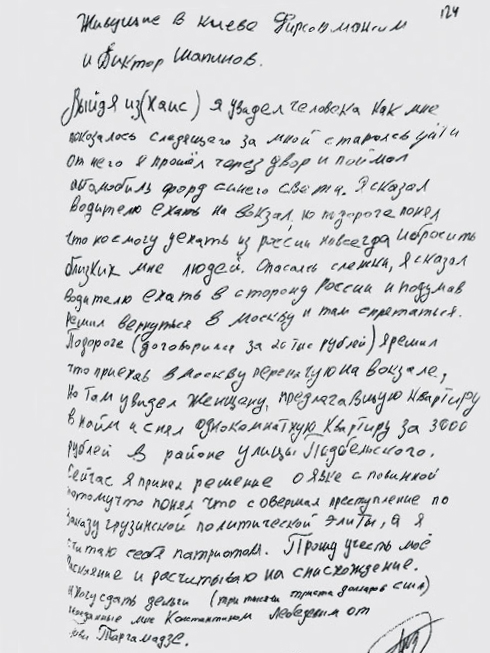 124
Живущие в Киеве Фирсов Максим
и Виктор Шапинов.
Выйдя из (Хаис) я увидел человека как мне
показалось следящего за мной стараясь уйти
от него я прошёл через двор и поймал
автомобиль форд синего света. Я сказал
водителю ехать на вокзал, но по дороге понял
что не смогу уехать из россии навсегда и бросить
близких мне людей. Опасаясь слежки, я сказал
водителю ехать в сторону России и подумав
решил вернуться в Москву и там спрятаться.
По дороге (договорился за 20 тыс рублей) я решил
что приехав в москву переночую на вокзале,
но там увидел женщину, предлагавшую квартиру
в найм и снял однокомнатную квартиру за 3000
рублей в районе улицы Подбельского.
Сейчас я принял решение о явке с повинной
потому что понял что совершал преступление по
заказу грузинской политической элиты, а я
считаю себя патриотом. Прошу учесть моё
раскаяние и расчитываю на снисхождение.
и могу сдать деньги (три тысячи триста долларов сша)
переданные мне Константином Лебедевым от
Таргамадзе.